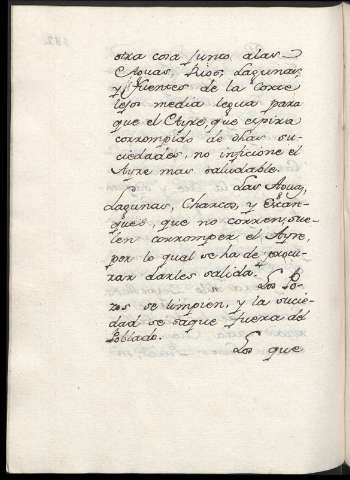 otra cosa junto a las
Aguas, Rios, Lagunas,
y Fuentes de la Corte
lejos media legua para
que el Ayre, que espira
corrompido de dhas su-
ciedades, no inficione el
Ayre mas saludable.
Las Aguas,
Lagunas, Charcos, y Estan-
ques, que no corren, sue-
len corromper el Ayre,
por lo qual se ha de procu-
rar darles salida.
Los Po-
zos se limpien, y la sucie-
dad se saque fuera del
Poblado.
Los que